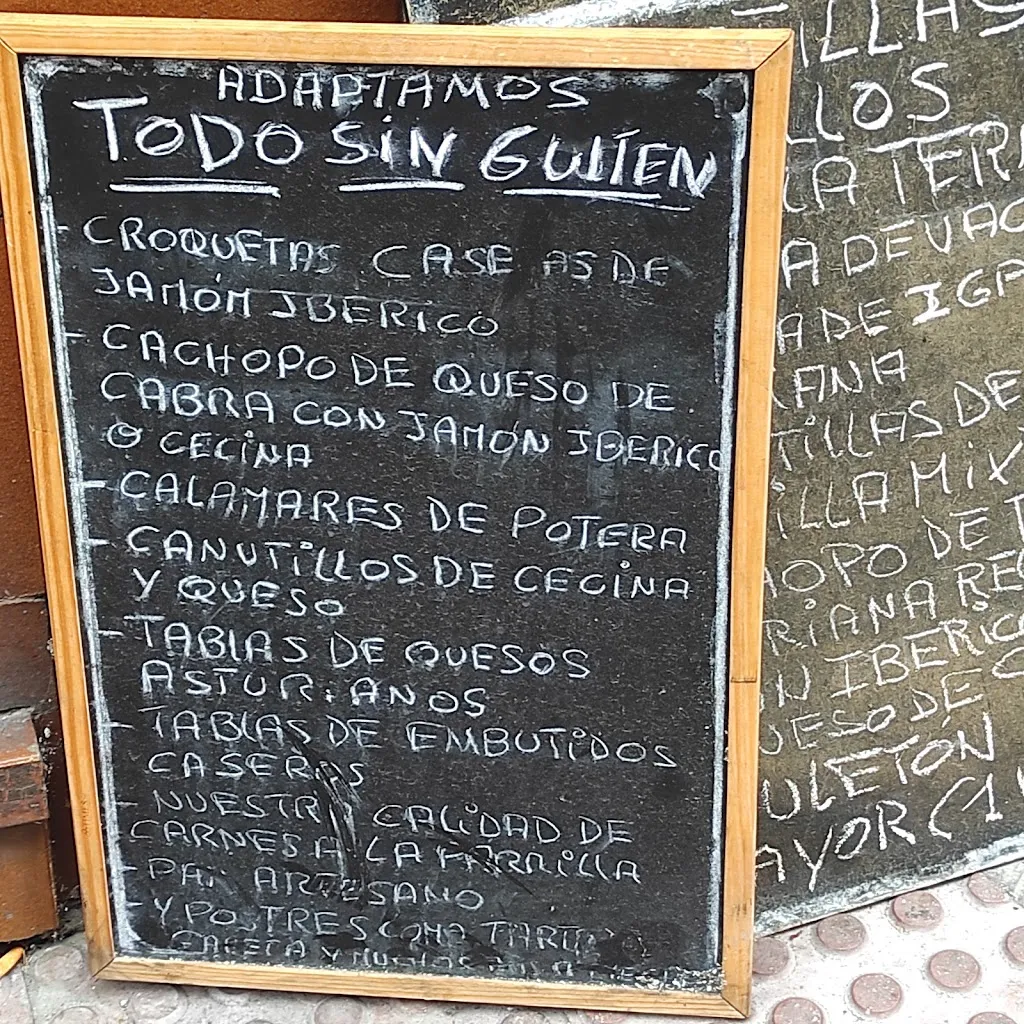 ADAPTAMOS
TODO SIN GLUTEN
- CROQUETAS CASE AS DE
JAMÓN IBERICO
- CACHOPO DE QUESO DE
CABRA CON JAMÓN IBERICO
O CECINA
- CALAMARES DE POTERA
- CANUTILLOS DE CECINA
Y QUESO
- TABLAS DE QUESOS
ASTURIANOS
- TABLAS DE EMBUTIDOS
CASEROS
- NUESTR CALIDAD DE
CARNES A LA PARRILLA
- PAN ARTESANO
- Y POSTRES COMO TARTA
ILLAS
LLOS
LA TER
A DE VAC
A DE
ANA
TILLAS DE
ILLA MIX
HOPO DE
RIANA RE
N IBERICO
UESO DE C
ULETÓN
AYOR (1